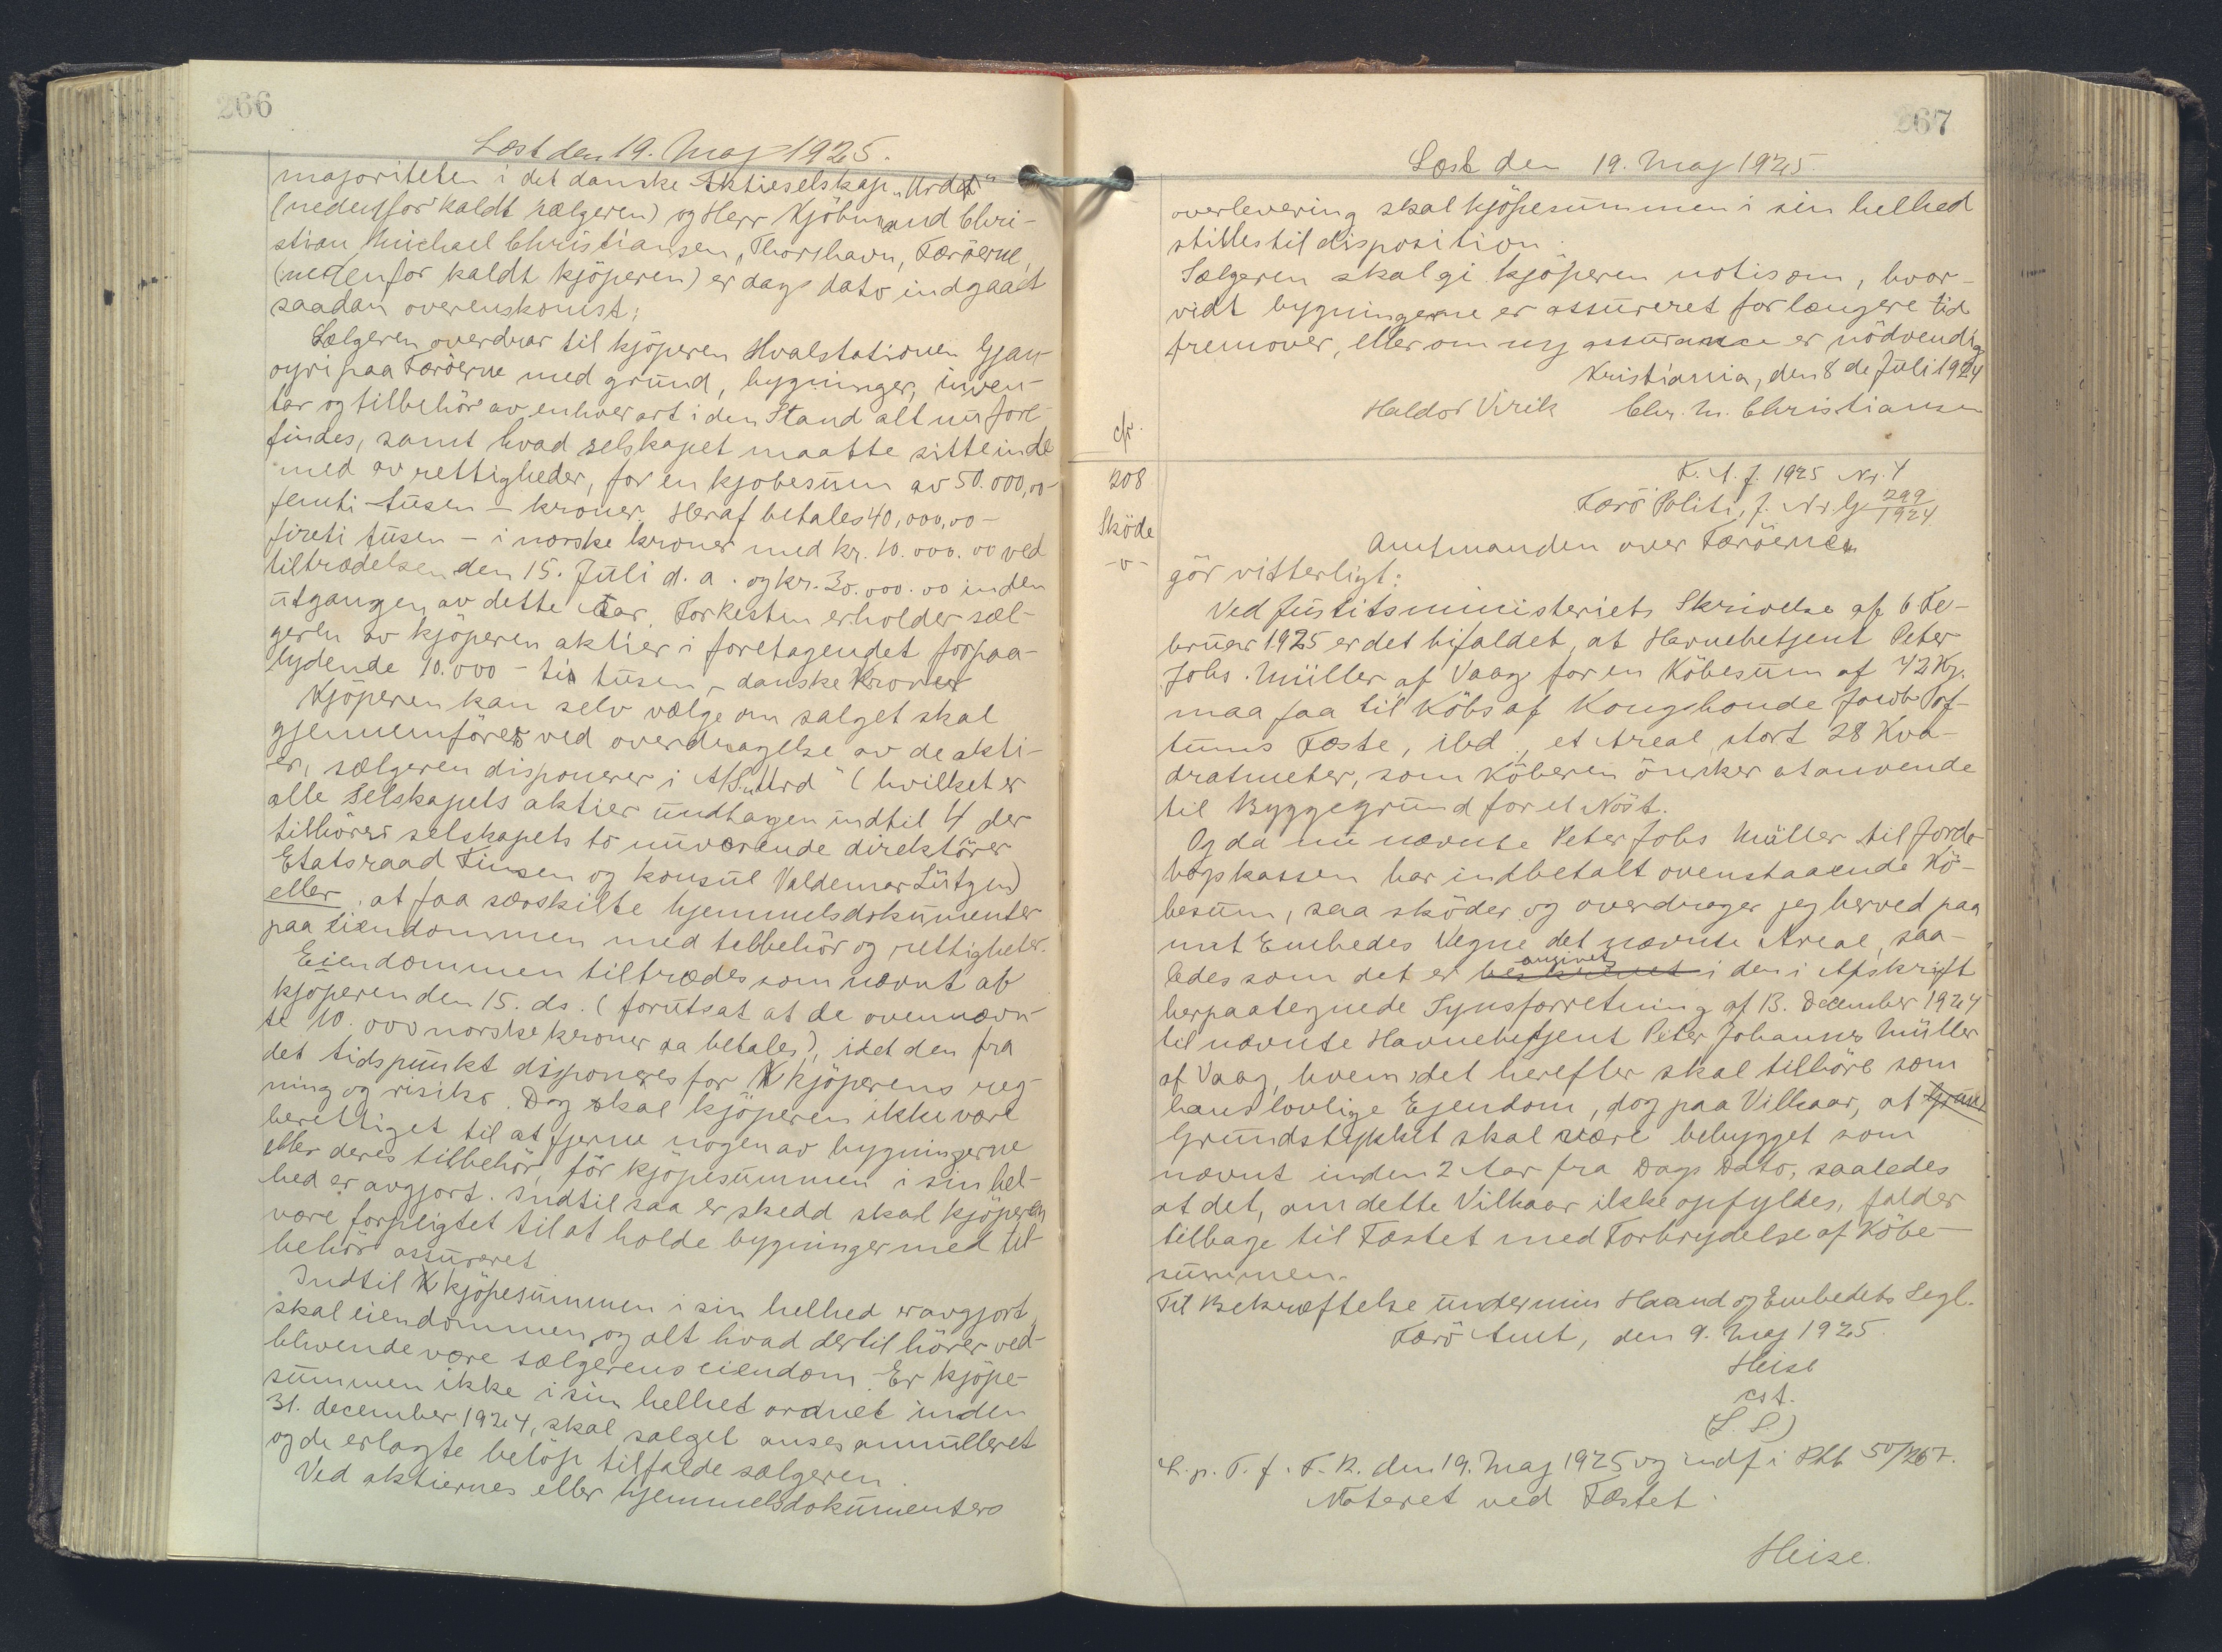 266
Læst den 19. Maj 1925.
majoriteten i det danske Aktieselskap "Urd"
(nedenfor kaldt sælgeren) og Herr Kjöbmand Chri-
stian Michael Christiansen, Thorshavn, Færöerne,
(nedenfor kaldt kjöperen) er dags dato indgaaet
saadan overenskomst:
Sælgeren overdrar til kjöperen Hvalstationen Gjan-
oyri paa Færöerne med grund, bygninger, inven-
tar og tilbehör av enhver art i den Stand alt nu fore-
findes, samt hvad selskapet maatte sitte inde
med av rettigheder, for en kjobesum av 50.000,00-
femti - tusen - kroner. Heraf betales 40,000,00-
fireti tusen - i norske kroner med kr. 10.000.00 ved
tiltrædelsen den 15. Juli d.a. og kr. 30.000.00 inden
utgangen av dette Aar. Forresten erholder sæl-
geren av kjöperen aktier i foretagendet for paa-
lydende 10.000 - ti tusen - danske Kroner
Kjöperen kan selv vælge om salget skal
gjennemföres ved overdragelse av de akti-
er, sælgeren disponerer i A/S. "Urd" (hvilket er
alle selskapets aktier undtagen indtil 4 der
tilhörer selskapets to nuværende direktörer
Etatsraad Finsen og konsul Valdemar Lützen)
eller, at faa særskilte hjemmelsdokumenter
paa eiendommen med tilbehör og rettigheter.
Eiendommen tiltrædes som nævnt af
kjöperen den 15. ds. (forutsat at de ovennævn-
te 10.000 norske kroner da betales), idet den fra
det tidspunkt disponeres for kjöperens reg-
ning og risiko. Dog skal kjöperen ikke være
berettiget til at fjerne nogen av bygningerne
eller deres tilbehör, för kjöpesummen i sin hel-
hed er avgjort. Indtil saa er skedd skal kjöperen
være forpligtet til at holde bygninger med til-
behör assureret
Indtil kjöpesummen i sin helhed er avgjort,
skal eiendommen og alt hvad dertil hörer ved-
blivende være sælgerens eiendom. Er kjöpe-
summen ikke i sin helhet ordnet inden
31. december 1924, skal salget anses annulleret
og de erlagte belöp tilfalde sælgeren.
Ved aktiernes eller hjemmelsdokumenters
267
Læst den 19. Maj 1925.
overlevering skal kjöpesummen i sin helhed
stilles til disposition.
Sælgeren skal gi kjöperen notis om, hvor-
vidt bygningerne er assureret for længere tid
fremover, eller om ny assurance er nödvendig
Kristiania, den 8 de Juli 1924
Haldor Virik Chr. M. Christiansen
cfr.
208
Sköde
-v-
F.A.J. 1925 Nr. 4
Færö Politi, J. Nr. G 299/1924
Amtmanden over Færöerne
gör vitterligt:
Ved Justitsministeriets Skrivelse af 6 Fe-
bruar 1925 er det bifaldet, at Havnebetjent Peter
Johs. Müller af Vaag for en Köbesum af 42 Kr.
maa faa til Köbs af Kongsbonde Jacob Pof-
tums Fæste, ibd., et Areal stort 28 Kva-
dratmeter, som Köberen önsker at anvende
til Byggegrund for et Nöst.
Og da nu nævnte Peter Johs Müller til Jorde-
bogskassen har indbetalt ovenstaaende Kö-
besum, saa sköder og overdrager jeg herved paa
mit Embedes Vegne det nævnte Areal, saa-
ledes som det er angivet i den i Afskrift
herpaategnede Synsforretning af 13. December 1924
til nævnte Havnebetjent Peter Johannes Müller
af Vaag, hvem det herefter skal tilhöre som
hans lovlige Ejendom, dog paa Vilkaar, at Grund
Grundstykket skal være bebygget som
nævnt inden 2 Aar fra Dags Dato, saaledes
at det, om dette Vilkaar ikke opfyldes, falder
tilbage til Fæstet med Forbrydelse af Köbe-
summen.
Til Bekræftelse under min Haand og Embedets Segl.
Færö Amt, den 9. Maj 1925.
Heise
cst.
(L.S.)
L.p.T.f.F.R. den 19. Maj 1925 og indf i Pkb 50/267.
Noteret ved Fæstet.
Heise.